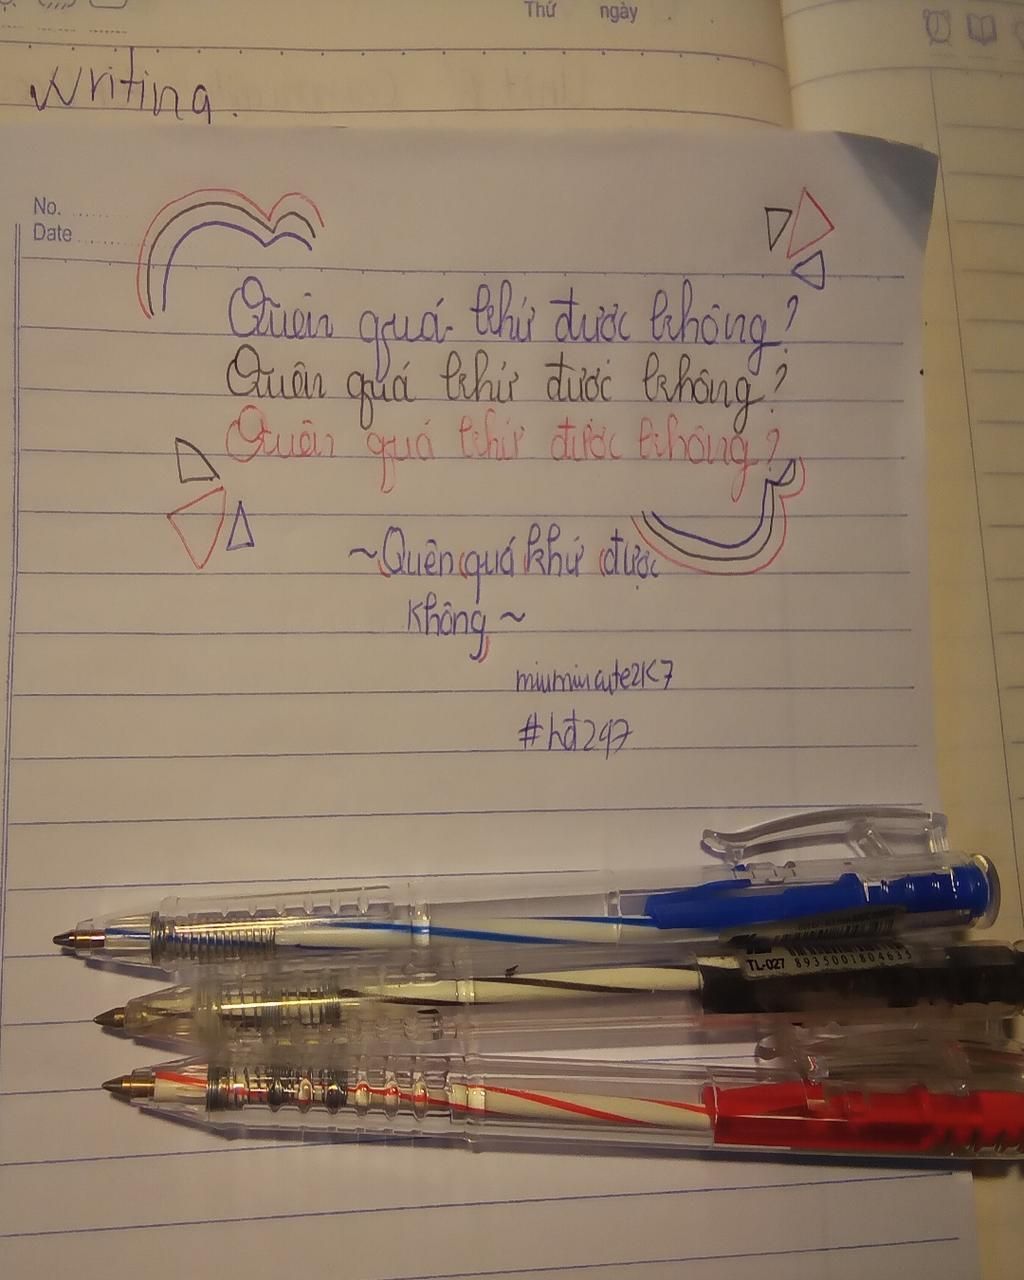 Thứ ngày
Writing.
No.
Date
Quên quá khứ được không?
Quên quá khứ được không?
Quên quá khứ được không?
~Quên quá khứ được
không~
miumiucute2K7
#hđ247
TL-027 8935001804635